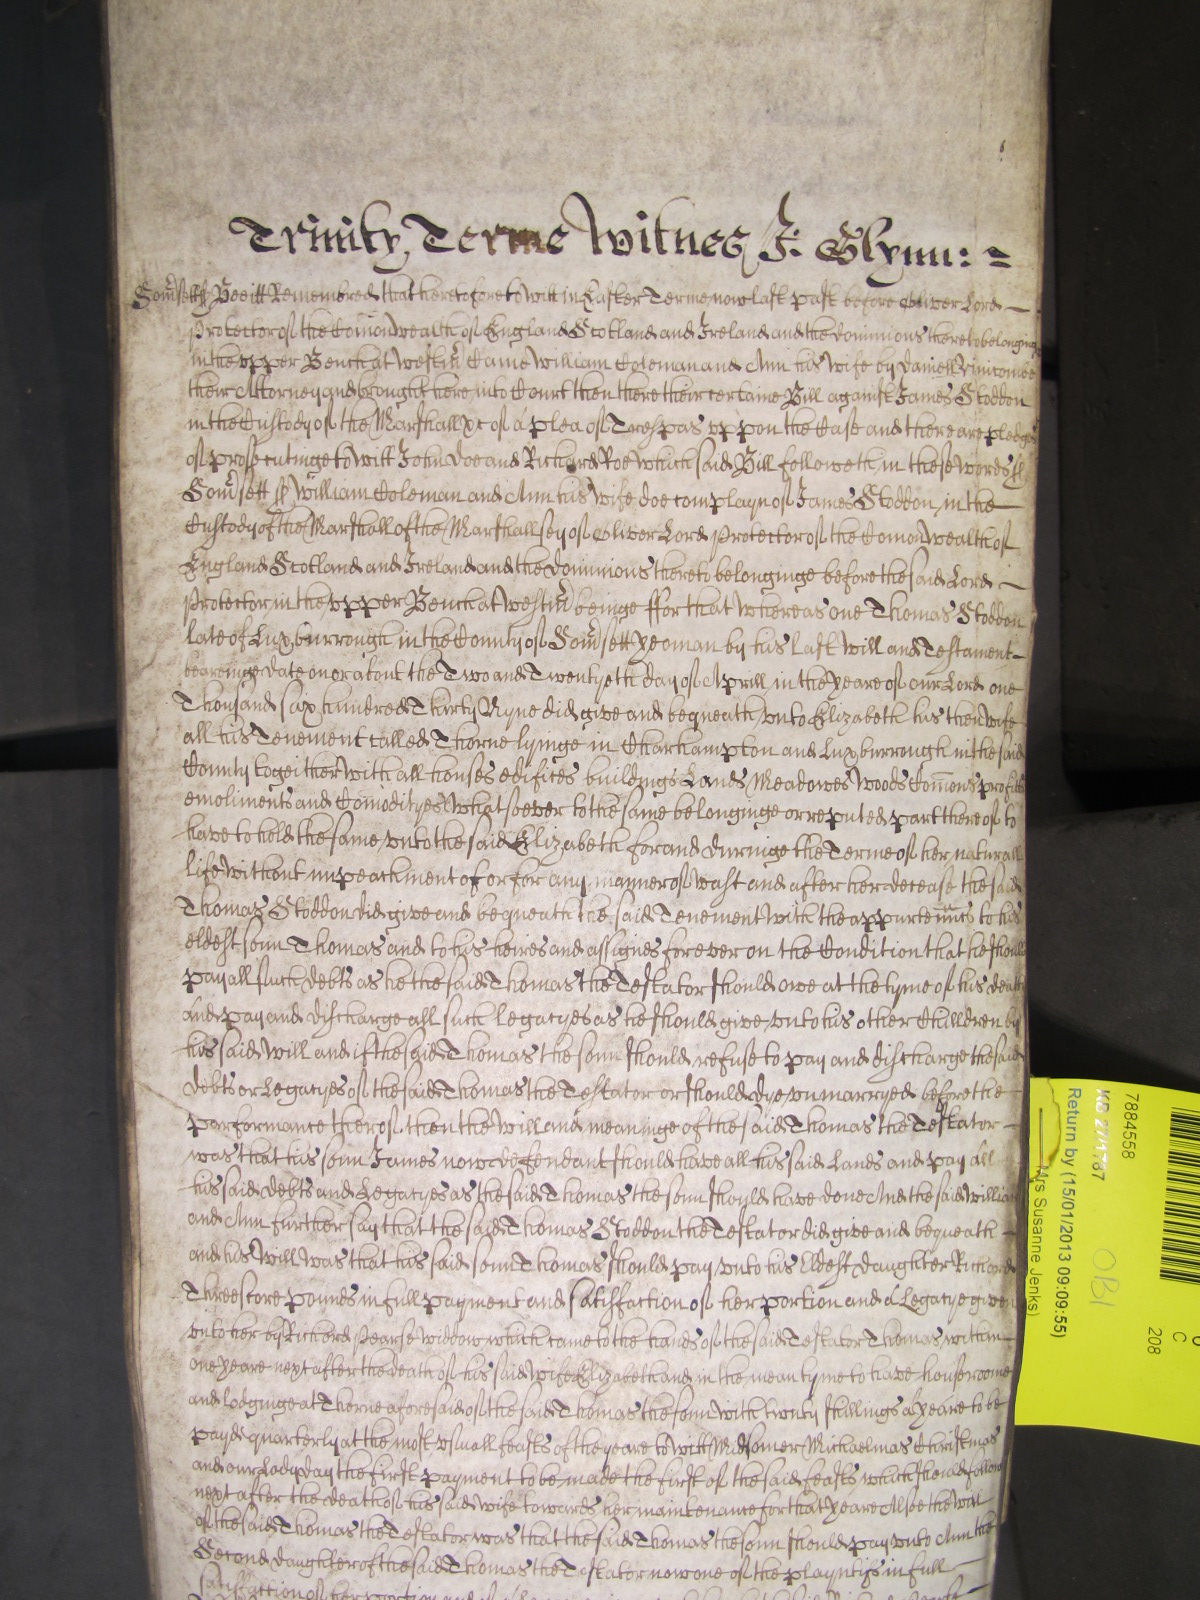 Trinity Terme Witnes J: Glynn: =
Som̄sett ss Bee itt Remembred that heretofore to witt in Easter Terme now last past before Oliver Lord
Protector of the Com̄onwealth of England Scotland and Ireland and the dominions thereto belonginge
in the vpper Bench at Westm̄ Came William Coleman and Ann his wife by Daniell
their Attorney and brought here into Court then there their certaine Bill against James Stoddon
in the Custody of the Marshall &c of a plea of Trespas vppon the Case and there are pledges
of prosecutinge to witt John Doe and Richard Roe which said Bill followeth in these words ss
Som̄sett ss William Coleman and Ann his wife doe complayn of James Stoddon in the
Custody of the Marshall of the Marshallsey of Oliver Lord Protector of the Com̄onwealth of
England Scotland and Ireland and the dominions thereto belonginge before the said Lord
Protector in the vpper Bench at Westm̄ beinge ffor that Whereas one Thomas Stoddon
late of Luxburrough in the County of Som̄sett yeoman by his last will and Testament
beareinge date on or about the Two and Twentyeth day of Aprill in the yeare of our Lord one
Thousand six hundred Thirty Nyne did give and bequeath vnto Elizabeth his then wife
all his Tenement called Thorne lyinge in Charkampton and Luxburrough in the said
County togeither with all houses edifices buildings Lands Meadowes Woods Com̄ons profitts
emoliments and Com̄odityes whatsoever to the same belonginge or reputed part thereof to
have to hold the same vnto the said Elizabeth for and duringe the Terme of her naturall
life without impeachment of or for any manner of wast and after her decease the said
Thomas Stoddon did give and bequeath the said Tenement with the appurten̄nts to his
eldest sonn Thomas and to his heires and assignes for ever on the Condition that he should
pay all such debts as he the said Thomas the Testator should owe at the tyme of his death
and pay and discharge all such legacyes as he should give vnto his other Children by
his said will and if the said Thomas the sonn should refuse to pay and discharge the said
debts or Legacyes of the said Thomas the Testator or should dye vnmarryed before the
performance thereof then the will and meaninge of the said Thomas the Testator
was that his sonn James now defendant should have all his said Lands and pay all
his said debts and Legacyes as the said Thomas the sonn should have done And the said William
and Ann further say that the said Thomas Stoddon the Testator did give and bequeath
and his will was that his said sonn Thomas should pay vnto his Eldest daughter Richord
Threescore pounds in full payment and satisfaction of her portion and a Legacye given
vnto her by Richord Pearse widdow which came to the hands of the said Testator Thomas within
one yeare next after the death of his said wife Elizabeth and in the mean tyme to have houseroome
and lodginge at Thorne aforesaid of the said Thomas the sonn with twenty shillings a yeare to be
payd quarterly at the most vsuall feasts of the yeare to witt Midsomer Michaelmas Christmas
and our Lady day the first payment to be made the first of the said feasts which should follow
next after the death of his said wife towards her maintenance for that yeare Alsoe the will
of the said Thomas the Testator was that the said Thomas the sonn should pay vnto Ann the
Second daughter of the said Thomas the Testator now one of the playntifs in full
satisfaction of her portion and
7884558
KB 27/1787
Return by (15/01/2013 09:09:55)
Mrs Susanne Jenks)
OBI
C
208